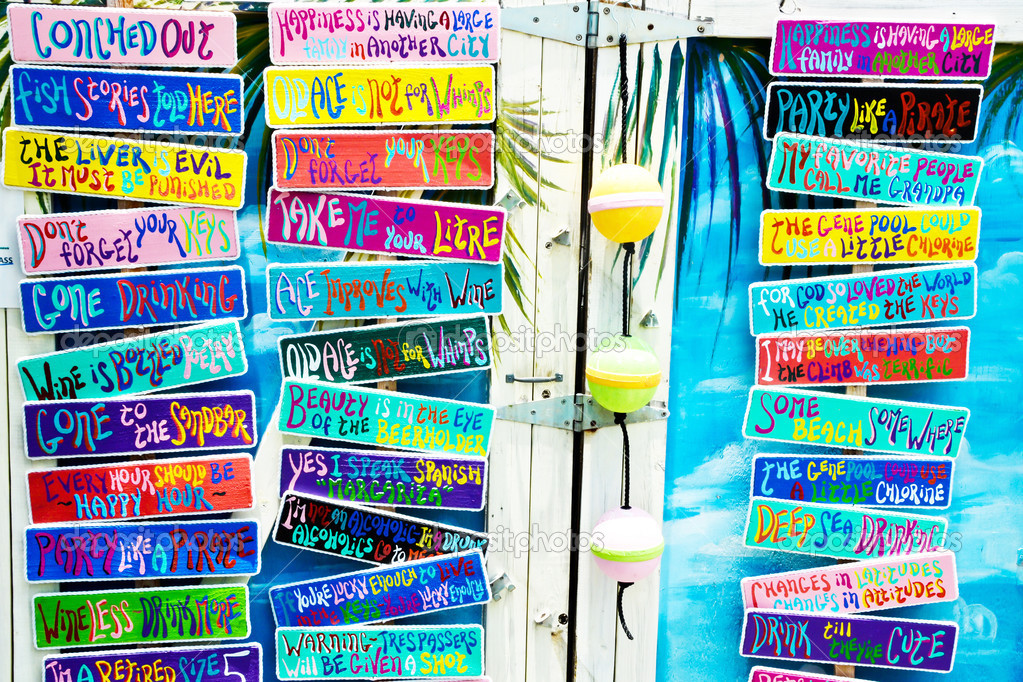 CONCHED OUT
FISH STORIES TOLD HERE
THE LIVER IS EVIL
IT MUST BE PUNISHED
DON'T FORGET YOUR KEYS
GONE DRINKING
WINE IS BOTTLED POETRY
GONE TO THE SANDBAR
EVERY HOUR SHOULD BE
~ HAPPY HOUR ~
PARTY LIKE A PIRATE
WINE LESS - DRINK MORE
I'M A RETIRED SIZE 5
HAPPINESS IS HAVING A LARGE
FAMILY IN ANOTHER CITY
OLD AGE IS NOT FOR WHIMPS
DON'T FORGET YOUR KEYS
TAKE ME TO YOUR LITRE
AGE IMPROVES WITH WINE
OLD AGE IS NOT FOR WHIMPS
BEAUTY IS IN THE EYE
OF THE BEERHOLDER
YES I SPEAK SPANISH
"MARGARITA"
I'M NOT AN ALCOHOLIC I'M DRUNK
ALCOHOLICS GO TO ME
IF YOU'RE LUCKY ENOUGH TO LIVE
IN THE KEYS YOU'RE LUCKY ENOUGH
WARNING - TRESPASSERS
WILL BE GIVEN A SHOT
HAPPINESS IS HAVING A LARGE
FAMILY IN ANOTHER CITY
PARTY LIKE A PIRATE
MY FAVORITE PEOPLE
CALL ME GRANDPA
THE GENE POOL COULD
USE A LITTLE CHLORINE
FOR GOD SO LOVED THE WORLD
HE CREATED THE KEYS
I MAY BE OVER THE HILL BUT
THE CLIMB WAS TERRIFIC
SOME BEACH SOMEWHERE
THE GENE POOL COULD USE
A LITTLE CHLORINE
DEEP SEA DRINKING
CHANGES IN LATITUDES
CHANGES IN ATTITUDES
DRINK TILL THEY'RE CUTE
depositphotos